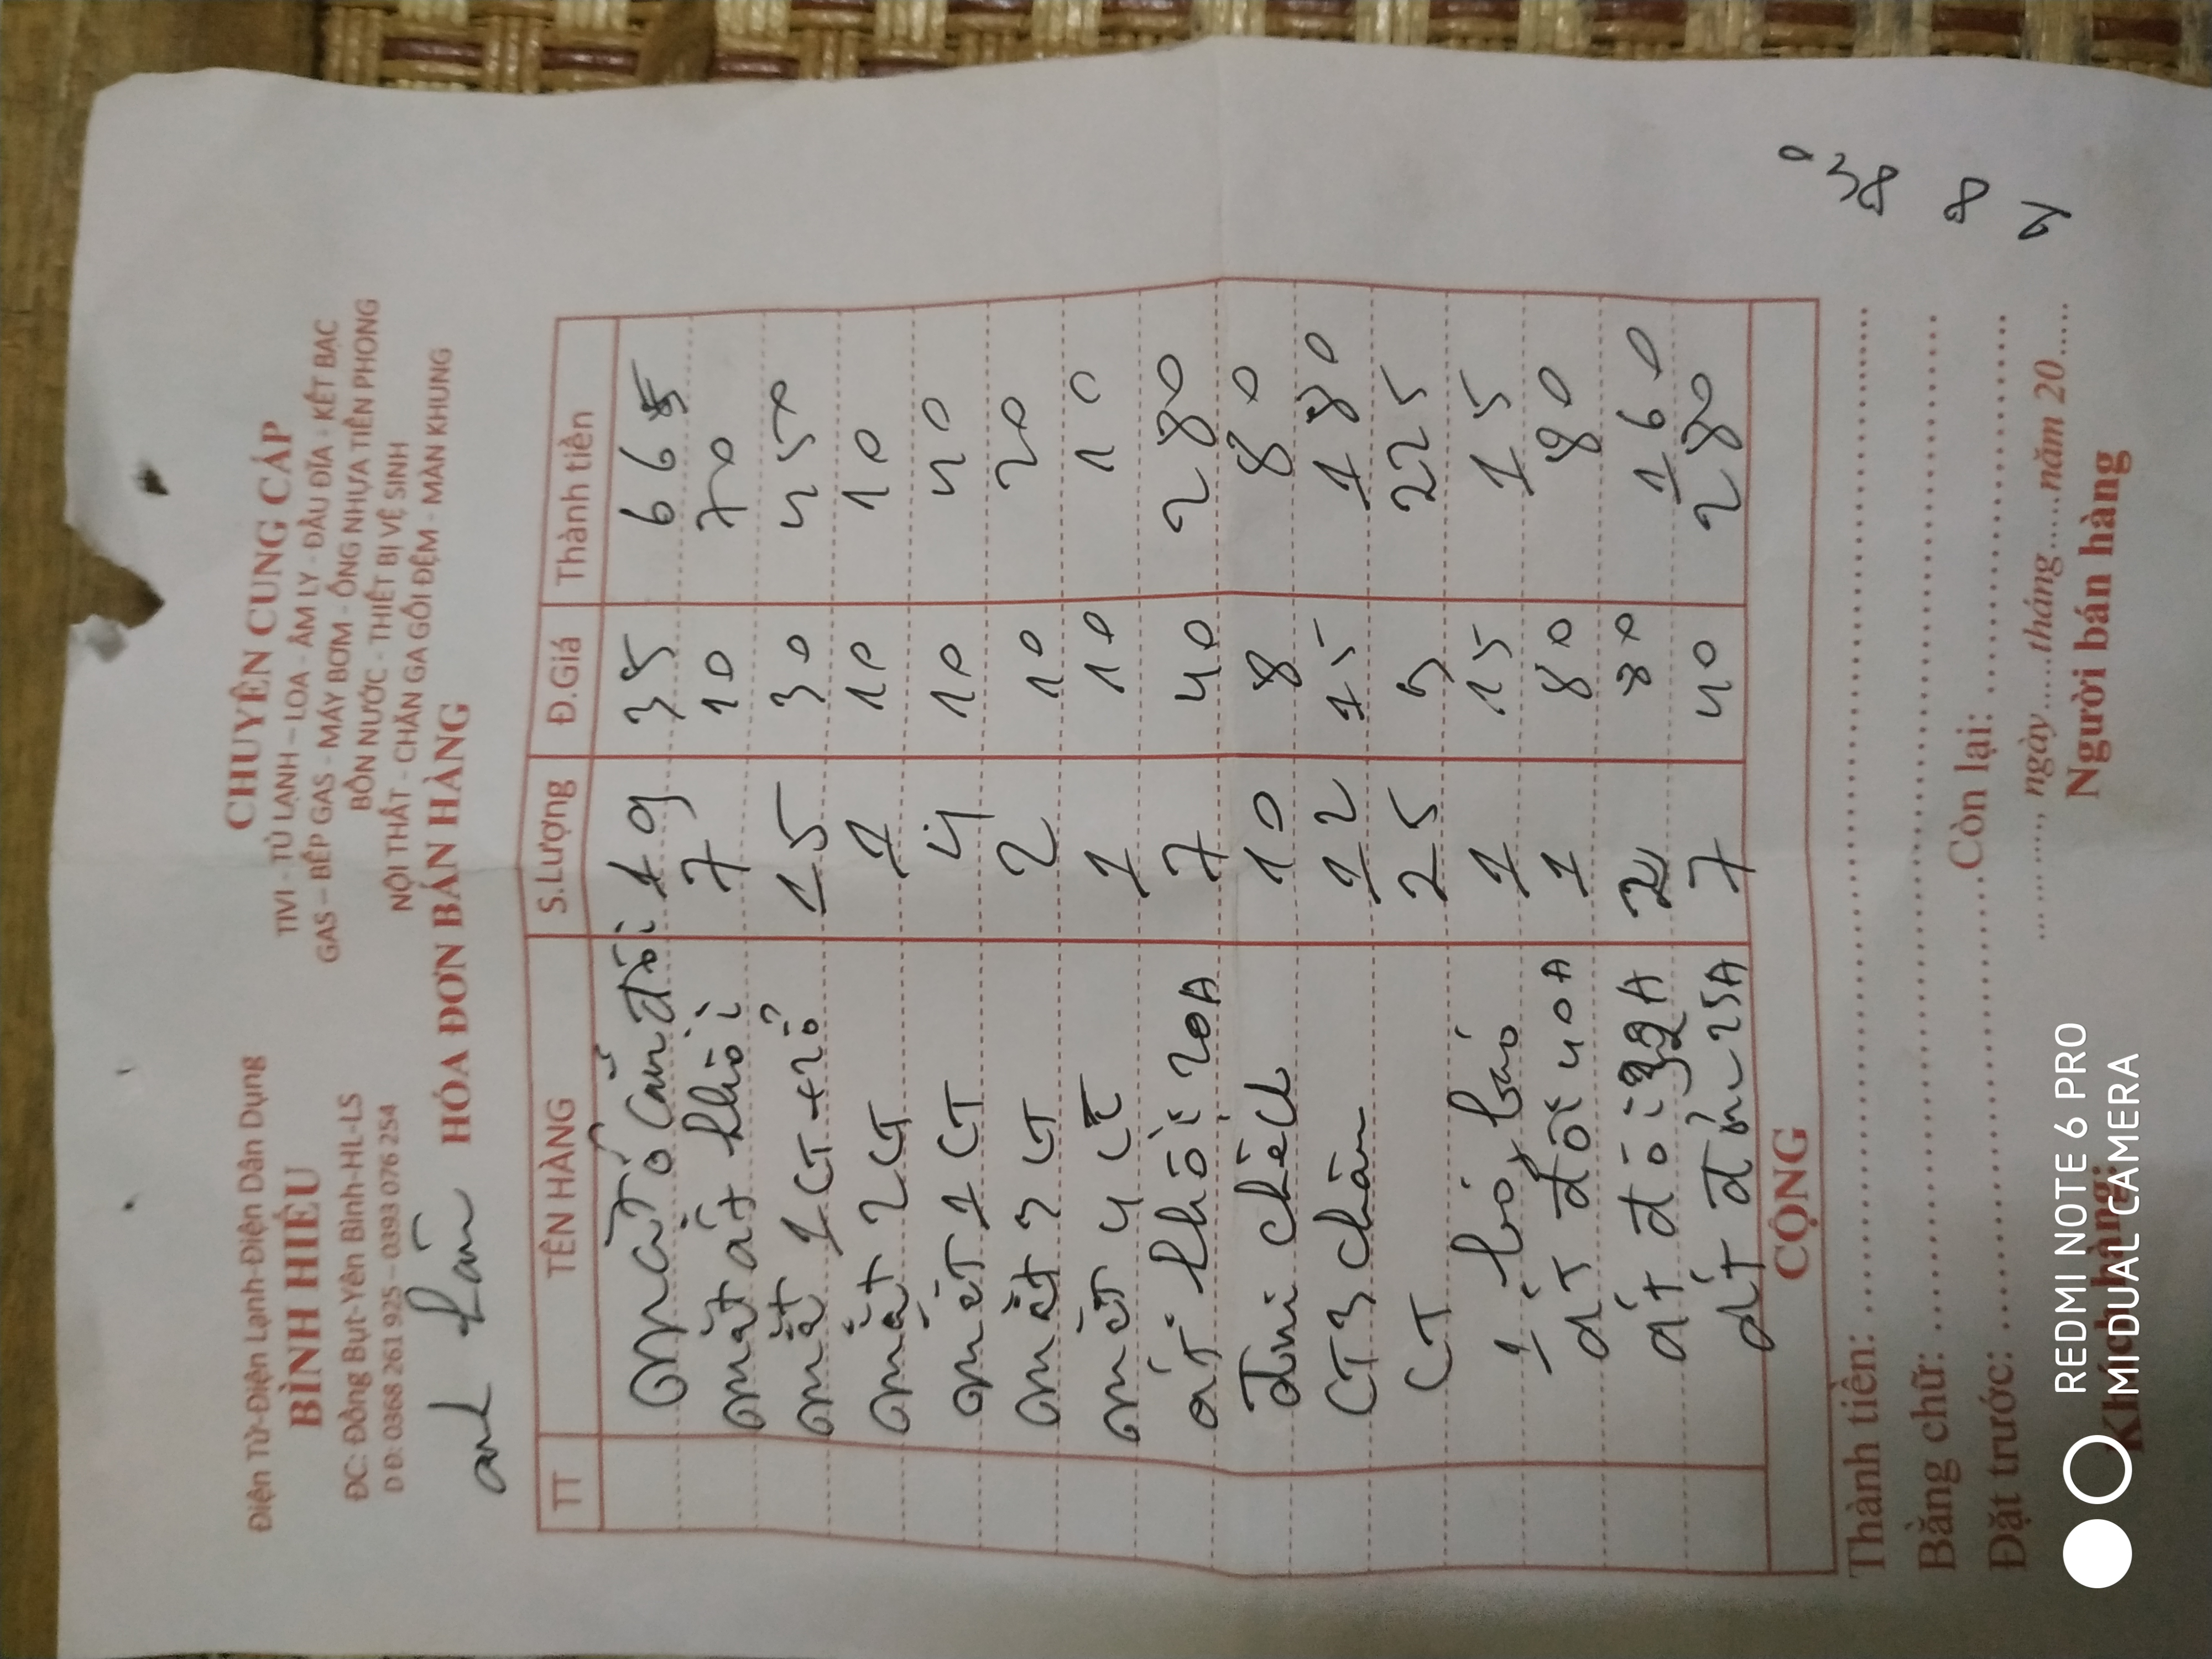 Điện Tử-Điện Lạnh-Điện Dân Dụng
BÌNH HIẾU
ĐC: Đồng Bụt-Yên Bình-HL-LS
D Đ: 0368 261 925 – 0393 076 254
CHUYÊN CUNG CẤP
TIVI - TỦ LẠNH – LOA - ÂM LY - ĐẦU ĐĨA - KÉT BẠC
GAS – BẾP GAS - MÁY BƠM - ỐNG NHỰA TIỀN PHONG
BỒN NƯỚC - THIẾT BỊ VỆ SINH
NỘI THẤT - CHĂN GA GỐI ĐỆM - MÀN KHUNG
anh
HÓA ĐƠN BÁN HÀNG
TT TÊN HÀNG S.Lượng Đ.Giá Thành tiền
mặt ổ cắm đôi 19 35 665
mặt át khối 7 10 70
mặt 1CT+2ổ 15 30 450
mặt 2CT 1 10 10
mặt 1 CT 4 10 40
mặt 3 CT 2 10 20
mặt 4 CT 1 10 10
át khối 20A 7 40 280
đui chếch 10 8 80
CT3 chân 12 15 180
CT 25 9 225
1 1 15 15
át đôi 40A 1 80 80
át đôi 32A 2 80 160
át đơn 25A 7 40 280
CỘNG
Thành tiền:
Bằng chữ:
Đặt trước: Còn lại:
, ngày.....tháng.....năm 20.....
Khách hàng: Người bán hàng
REDMI NOTE 6 PRO
MI DUAL CAMERA